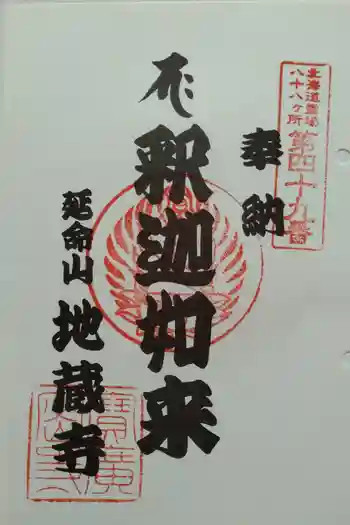 北海道霊場
八十八ケ所
第四十九番
奉納
釈迦如来
延命山
地蔵寺